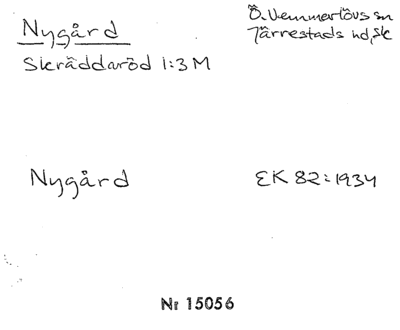 Nygård
Ö. Vemmerlövs sn
Järrestads hd, Sk
Skräddaröd 1:3 M
Nygård
EK 82:1934
Nr 15056